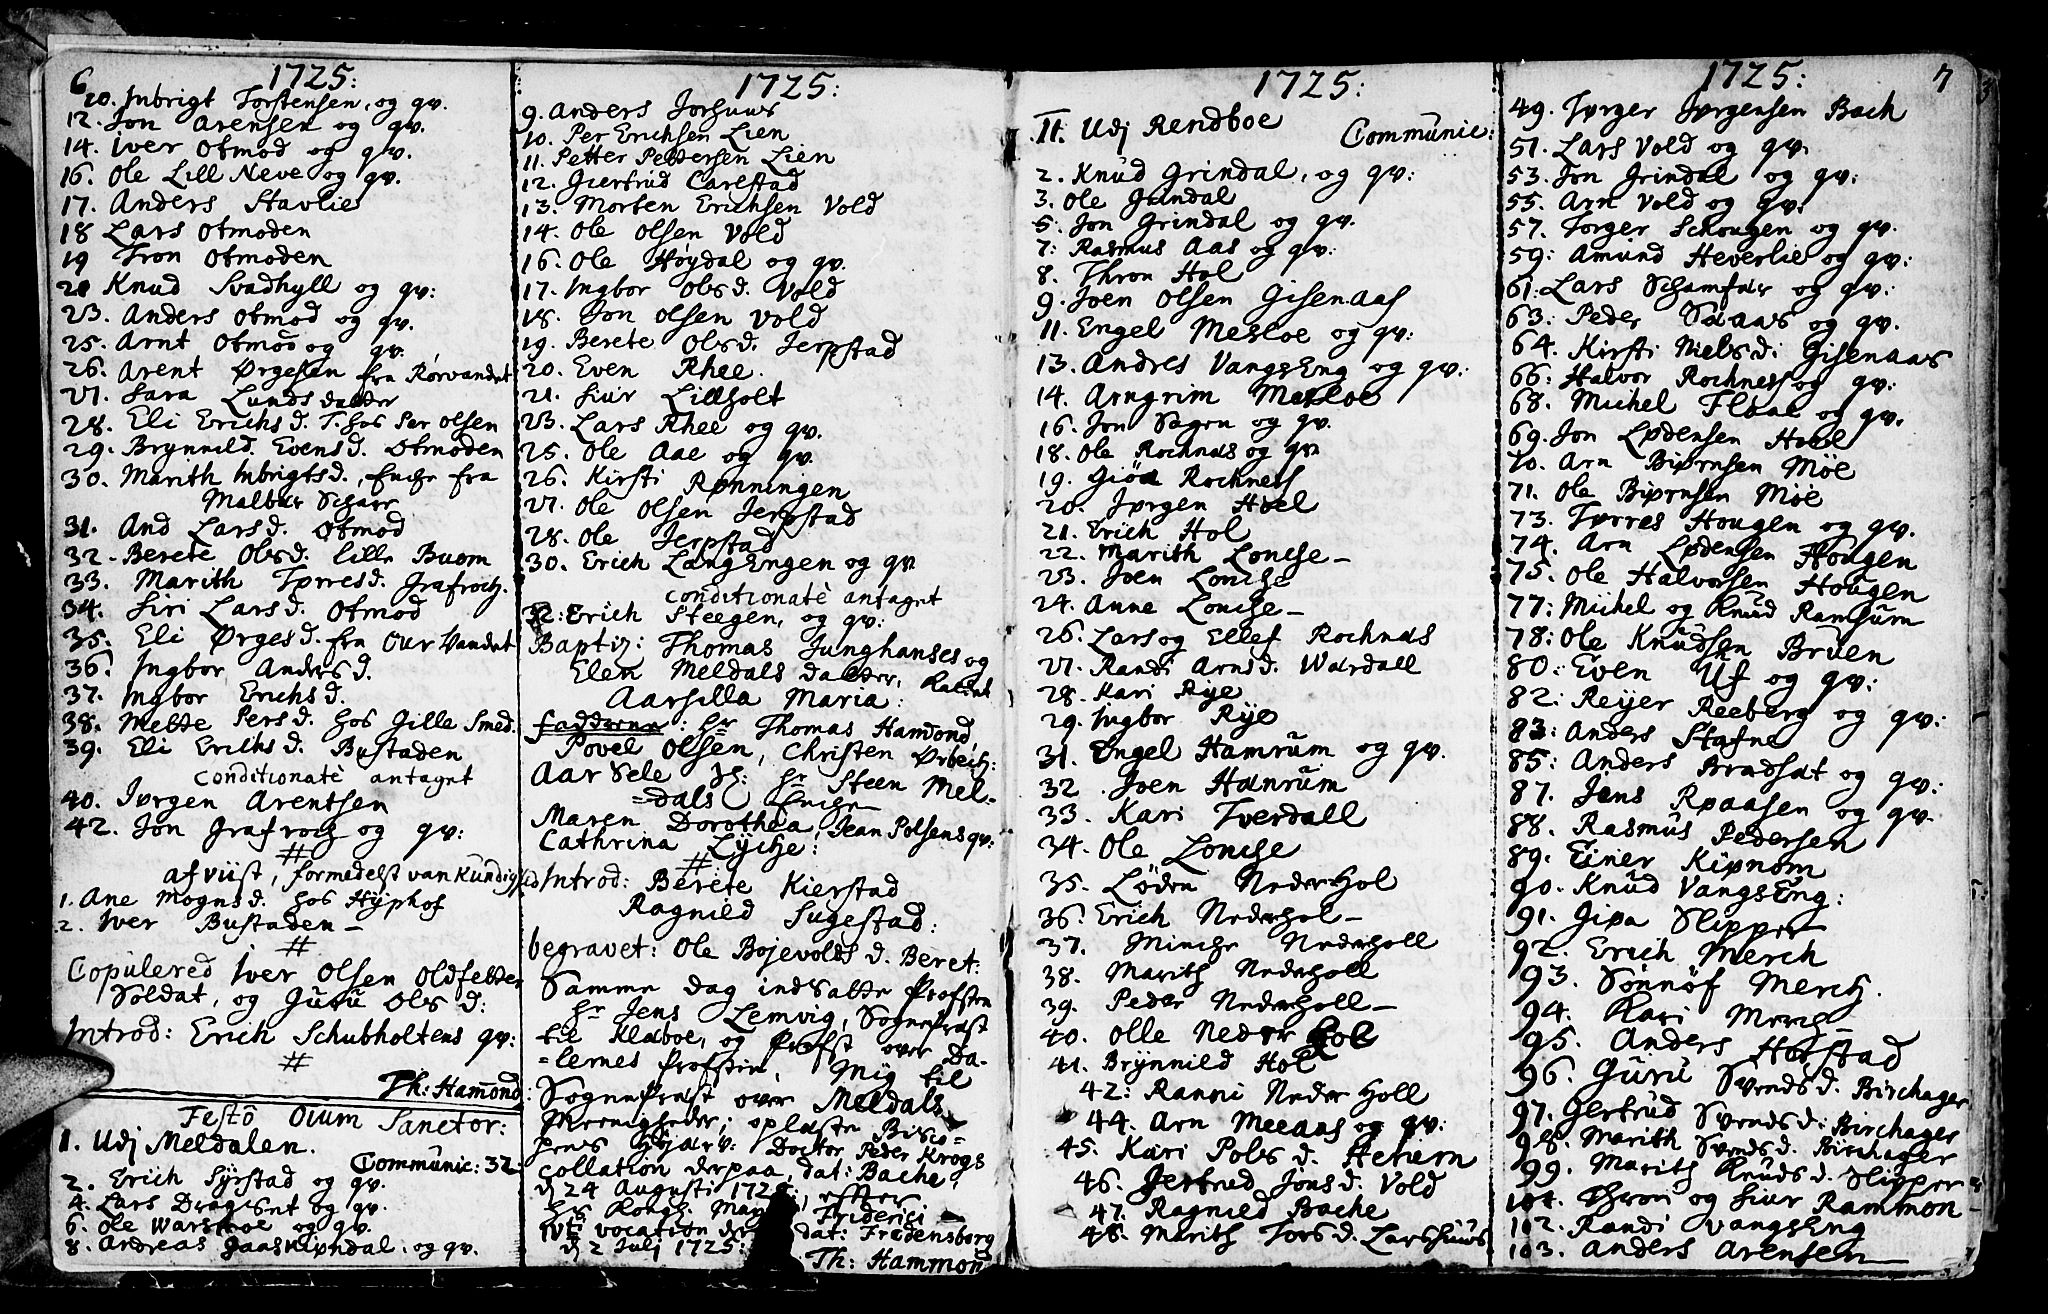 6
1725:
10. Inbrigt Torstensen, og qv.
12. Jon Arensen og qv.
14. Iver Otmod og qv.
16. Ole Lill Neve og qv.
17. Anders Stavlie
18 Lars Otmoden
19 Tron Otmoden
20 Knud Svadhyll og qv:
23. Anders Otmod og qv.
25. Arnt Otmod og qv.
26. Arent Ørgesen fra Rørvandet
27. Sara Lunds datter
28. Eli Erichs d. T. hos Per Olsen
29. Brynnild Evensd. Otmoden
30. Marith Inbrigts d., Enche fra
Malbur Schaer
31. And Lars d. Otmod
32. Berete Ols d. Lille Buom
33. Marith Tørres d. Grafroch.
34. Siri Lars d. Otmod
35. Eli Ørges d. fra Our Vandet
36. Ingbor Anders d.
37. Ingbor Erichs d.
38. Mette Pers d. hos Gille Smed.
39. Eli Erichs d. Bustaden
conditionatè antaget
40. Jørgen Arentsen
42. Jon Grafroch og qv:
#
afviist, formedelst vankundighed
1. Ane Mogns d. hos Hyphof
2. Iver Bustaden
#
Copulered Iver Olsen Oldfetter
Soldat, og Guru Ols d:
Introd: Erich Schubholtens qv:
#
Th: Hamond:
Festo Oium Sanctor:
1. Udj Meldalen.
Communic: 32:
2. Erich Syrstad og qv.
4. Lars Dragset og qv.
6. Ole Warsmoe og qv.
8. Andreas Gaaskipndal. og qv.
1725:
9. Anders Jorhuus
10. Per Erichsen Lien
11. Petter Pettersen Lien
12. Giertrud Carlstad
13. Morten Erichsen Vold
14. Ole Olsen Vold
16. Ole Høydal og qv.
17. Ingbor Olsd. Vold
18. Jon Olsen Vold
19. Berete Ols d. Jerpstad
20. Even Rhee.
21. Siur Lillholt
23. Lars Rhee og qv.
25. Ole Aae og qv.
26. Kirsti Rønningen
27. Ole Olsen Jerpstad
28. Ole Jerpstad
30. Erich LangEngen og qv
conditionatè antaget
32: Erich Steegen, og qv:
Baptiz: Thomas Junghanses og
Elen Meldals datter, kaldet
Aarsilla Maria:
faddrene: Hr Thomas Hamond
Povel Olsen, Christen Ørbech:
Aarsele Hr Steen Mel-
=dals Enche
Maren Dorothea, Jean Polsens qv:
Cathrina Lyche:
#
Introd: Berete Kierstad
Ragnied Sugestad:
begravet: Ole Bojevolds d. Beret:
Samme dag indsatte Profsten
Hr Jens Lemvig, SognePræst
til Klæboe, og Profst over Da-
=lernes Profstie, Mig til
SognePræst over Meldals
Meenigheder, oplæste Bisco=
pens Doctor Peder Krogs
collation derpaa, dat: Bache,
d 24 Augusti 1725, efter
Hs Kongl. Friderici
IVti vocation dat: Fredensborg
d 2 Julj 1725:
Th: Hammond
1725:
II. Udj Rendboe
Communic:
2. Knud Grindal, og qv:
3. Ole Grindal
5. Jon Grindal og qv.
7: Rasmus Aas og qv:
8. Thron Hol
9. Joen Olsen Gisenaas
11. Engel Mesloe og qv:
13. Andres VangsEng og qv:
14. Arngrim Mesloe
16. Jon Sagen og qv.
18. Ole Rochnes og qv
19. Giøa Rochness
20. Jørgen Hoel
21. Erich Hol
22. Marith Lonche
23. Joen Lonche
24. Anne Lonche
26. Lars og Ellef Rochnes
27. Randi Arns d. Wardall
28. Kari Rye
29. Ingbor Rye
31. Engel Hamrum og qv.
32. Joen Hamrum
33. Kari Tverdall
34. Ole Lonche
35. Løden NederHol
36. Erich Nederhol
37. Minche Nederholl
38. Marith Nederholl
39. Peder Nederholl
40. Olle Neder Hol
41. Brynnild Hol
42: Ranni Neder Holl
44. Arn Meeaas og qv:
45. Kari Pols d. Heticrn
46. Gertrud Jons d. Vold
47. Ragnied Bache
48. Marith Tors d. Larshuus
1725:
7
49. Tørger Jørgensen Bach
51. Lars Vold og qv.
53. Jon Grindal og qv:
55. Arn Vold og qv:
57. Torger Schougen og qv.
59: Amund Heverlie og qv:
61: Lars Schamfær og qv:
63: Peder Skaas og qv.
64. Kirsti Niels d: Gisenaas
66: Halvor Rochness og qv:
68. Michel Floae og qv.
69. Jon Lødensen Hoel
70. Arn Biørnsen Møe
71. Ole Biørnsen Møe
73. Tørres Hougen og qv.
74. Arn Lødensen Hougen
75. Ole Halvorsen Hougen
77: Michel og Knud Ramsum
78: Ole Knudsen Bruen
80: Even Uf og qv:
82: Reyer Reeberg og qv:
83: Anders Stafne
85: Anders Bradset og qv:
87. Jens Rpaasen og qv
88. Rasmus Pedersen
89. Einer Kipnom
90. Knud VangsEng:
91. Gipa Slipper
92. Erich Merch
93. Sønnøf Merch.
94. Kari Merch
95. Anders Horstad
96. Guru Svends d. Birchager
97. Gertrud Svends d: Birchager
98. Marith Svends d. Birchager
99. Marith Knuds d. Slipper
101. Thron og Siur Rammon-
102. Randi VangsEng
103. Anders Arensen